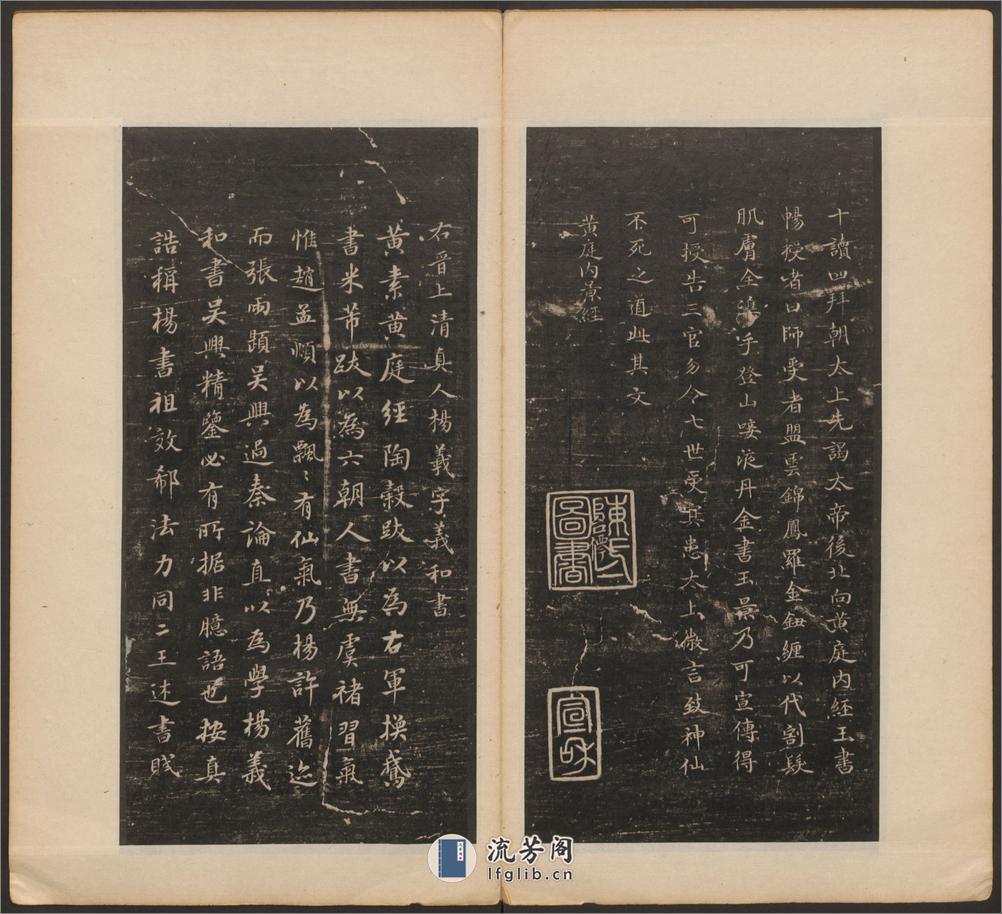 十讀四拜朝太上先謁太帝後北向黃庭內經玉書
暢授者曰師受者盟雲錦鳳羅金鈕纏以代割髮
肌膚全攜手登山歃液丹金書玉景乃可宣傳得
可授告三官勿令七世受其患太上微言致神仙
不死之道此其文
黃庭內景經
圖書
宣和
右晉上清真人楊羲字羲和書
黃素黃庭經陶穀跋以為右軍換鵞
書米芾跋以為六朝人書無虞褚習氣
惟趙孟頫以為飄飄有仙氣乃楊許舊迹
而張雨題吳興過秦論直以為學楊羲
和書吳興精鑒必有所据非臆語也按真
誥稱楊書祖效郗法力同二王述書賦
流芳阁
lfglib.cn